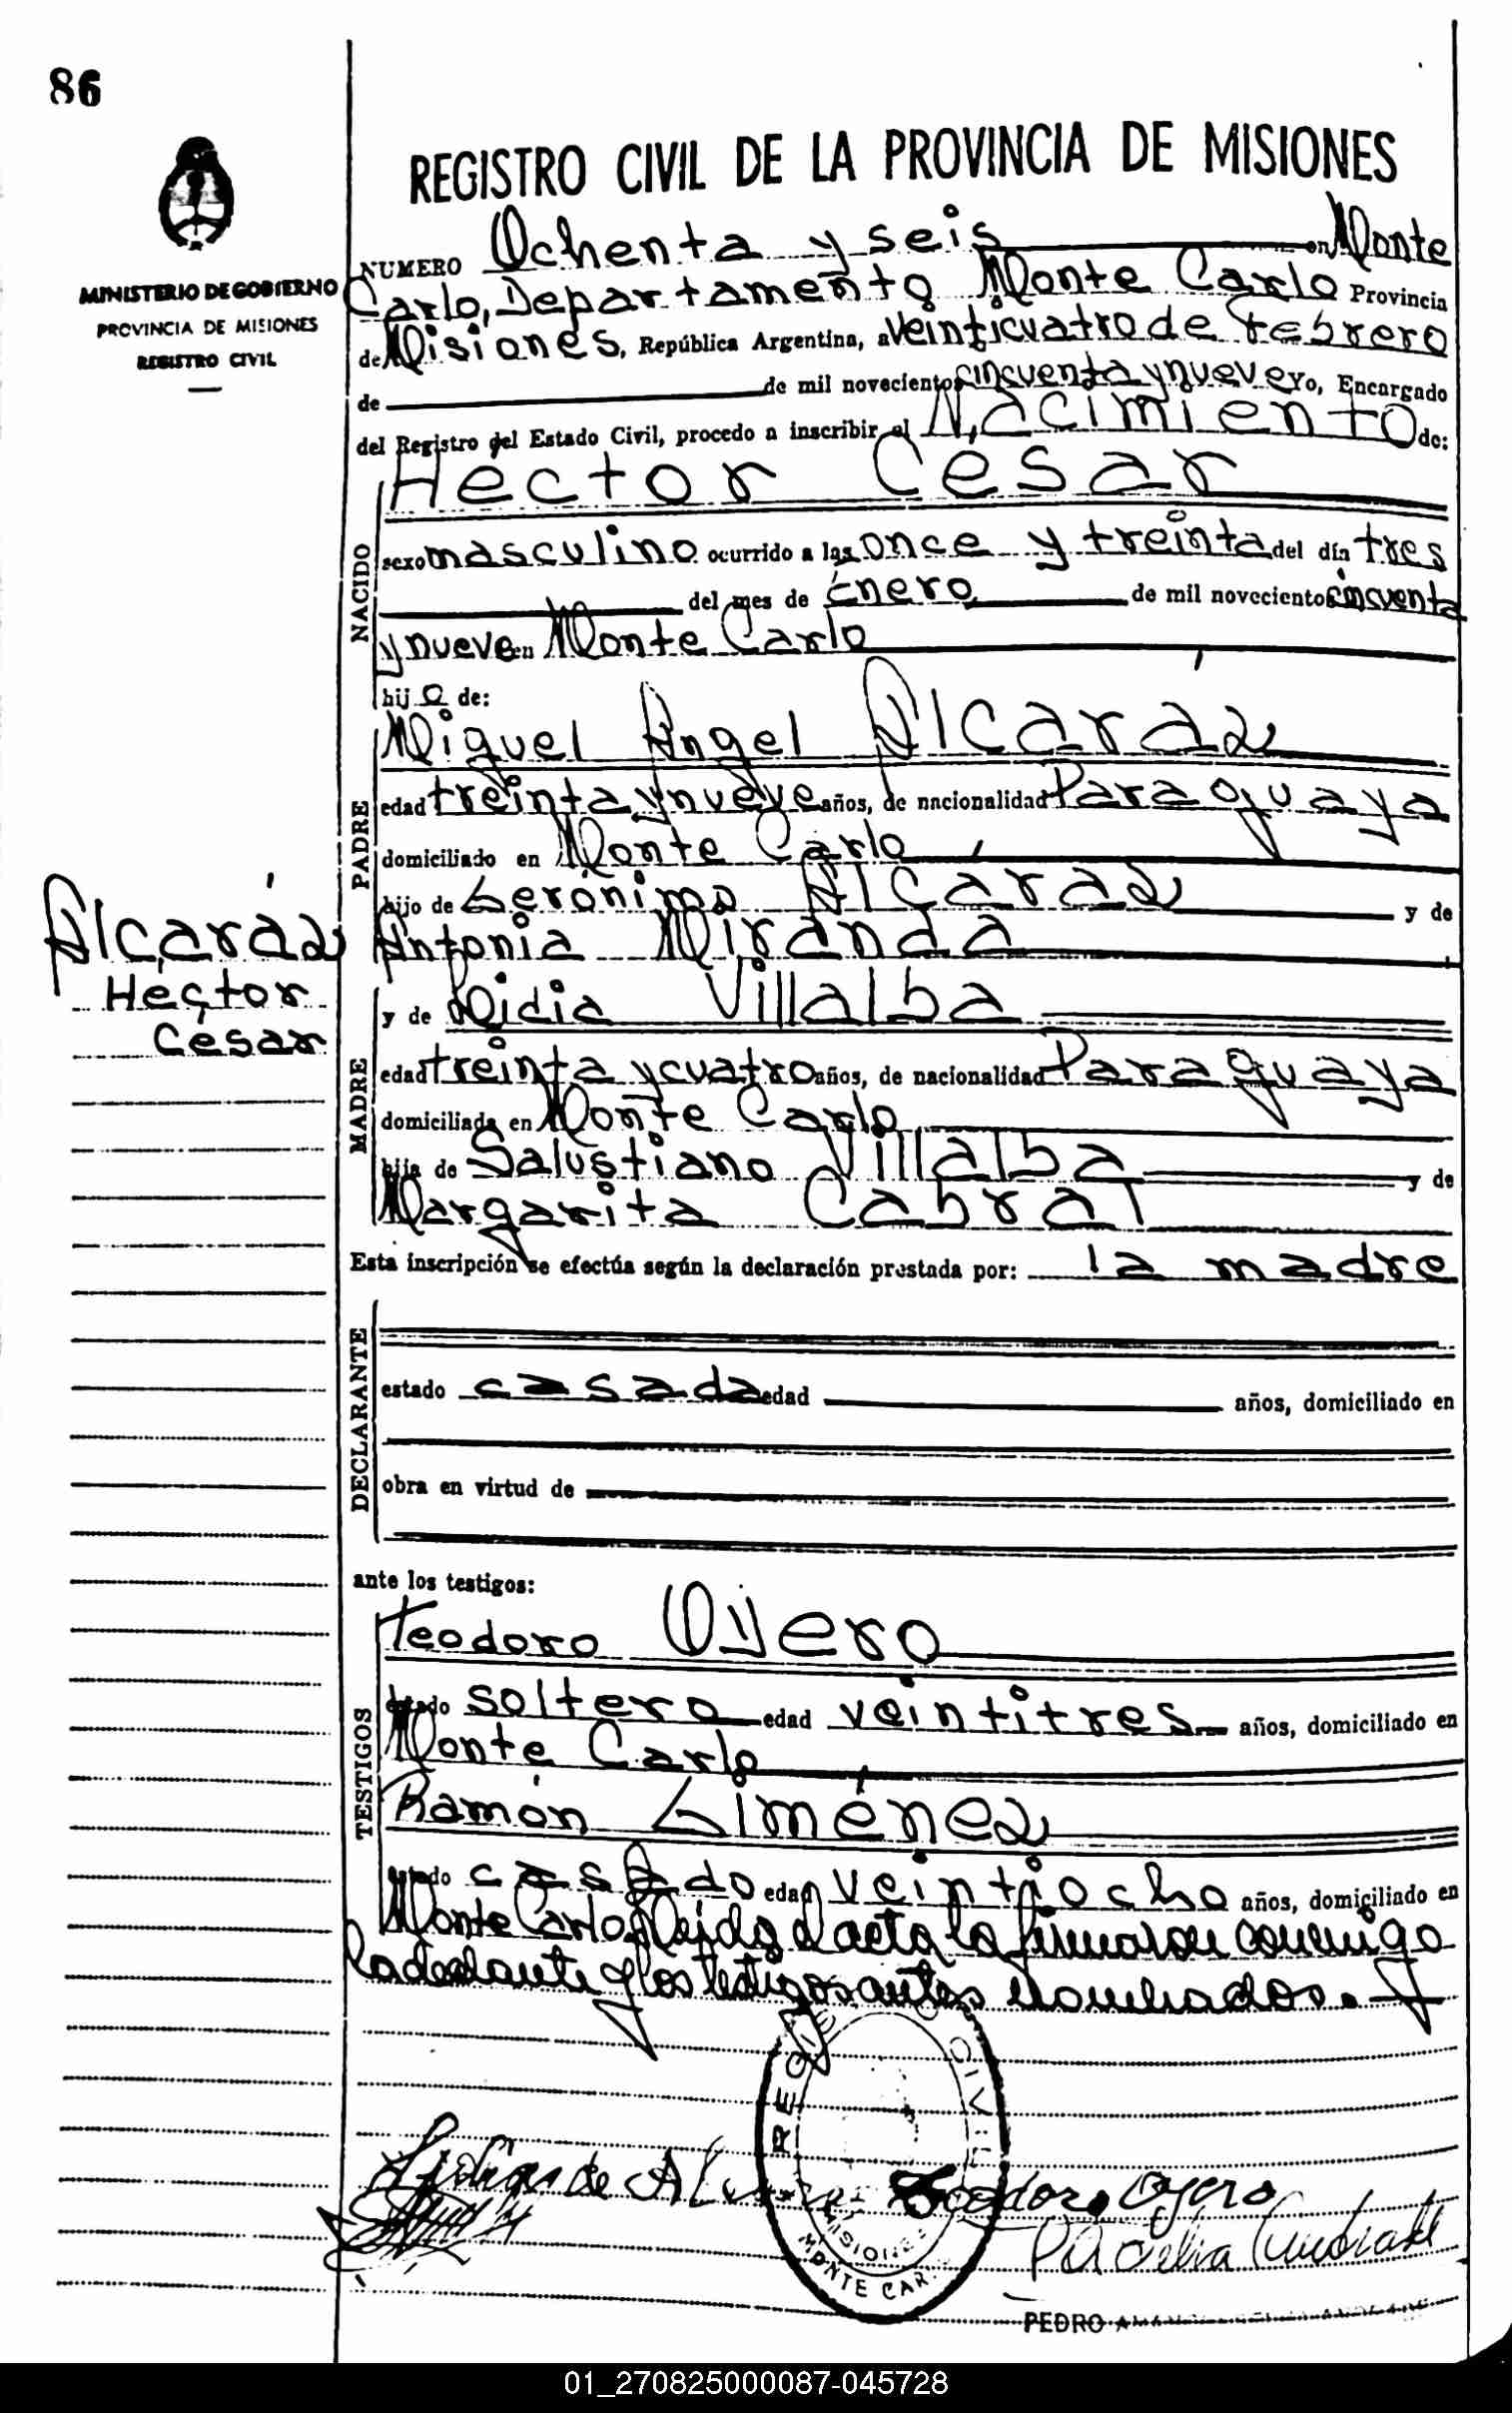 86
REGISTRO CIVIL DE LA PROVINCIA DE MISIONES
MINISTERIO DE GOBIERNO
PROVINCIA DE MISIONES
REGISTRO CIVIL
NUMERO Ochenta y seis en Monte
Carlo, Departamento Monte Carlo Provincia
de Misiones, República Argentina, a veinticuatro de Febrero
de de mil novecientos cincuenta y nueve Yo, Encargado
del Registro del Estado Civil, procedo a inscribir el Nacimiento de:
NACIDO
Hector César
sexo masculino ocurrido a las once y treinta del día tres
del mes de Enero de mil novecientos cincuenta
y nueve en Monte Carlo
hijo de:
PADRE
Miguel Angel Alcaráz
edad treinta y nueve años, de nacionalidad Paraguaya
domiciliado en Monte Carlo
hijo de Gerónimo Alcaráz y de
Antonia Miranda
Alcaráz
Héctor
César
MADRE
y de Lidia Villalba
edad treinta y cuatro años, de nacionalidad Paraguaya
domiciliada en Monte Carlo
hija de Salustiano Villalba y de
Margarita Cabral
Esta inscripción se efectúa según la declaración prestada por: la madre
DECLARANTE
estado casada edad años, domiciliado en
obra en virtud de
ante los testigos:
TESTIGOS
Teodoro Ojero
estado soltero edad veintitres años, domiciliado en
Monte Carlo
Ramón Giménez
estado casado edad veintiocho años, domiciliado en
Monte Carlo Leida el acta, la firmaron conmigo
la declarante y los testigos antes nombrados.
REGIS CIVIL
MISIONES
MONTE CAR
de Teodoro Ojero
PEDRO
01_270825000087-045728